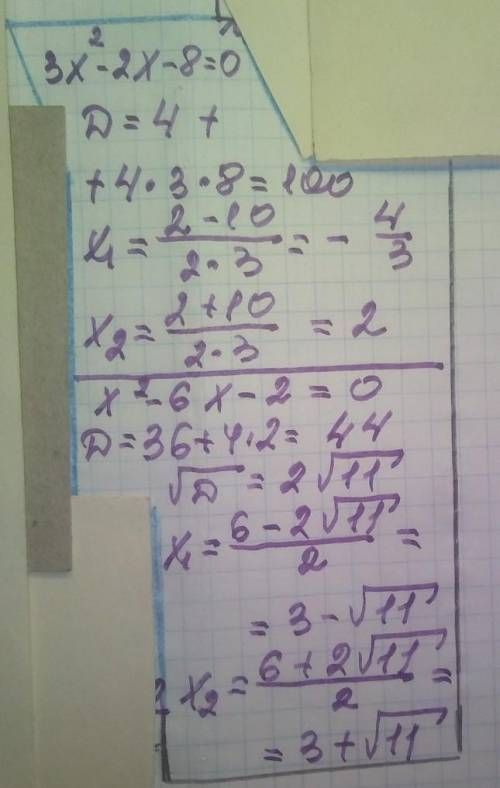 3x²-2x-8=0
D=4+
+4·3·8=100
x₁=(2-10)/(2·3)=-4/3
x₂=(2+10)/(2·3)=2
x²-6x-2=0
D=36+4·2=44
√D=2√11
x₁=(6-2√11)/2=
=3-√11
x₂=(6+2√11)/2=
=3+√11